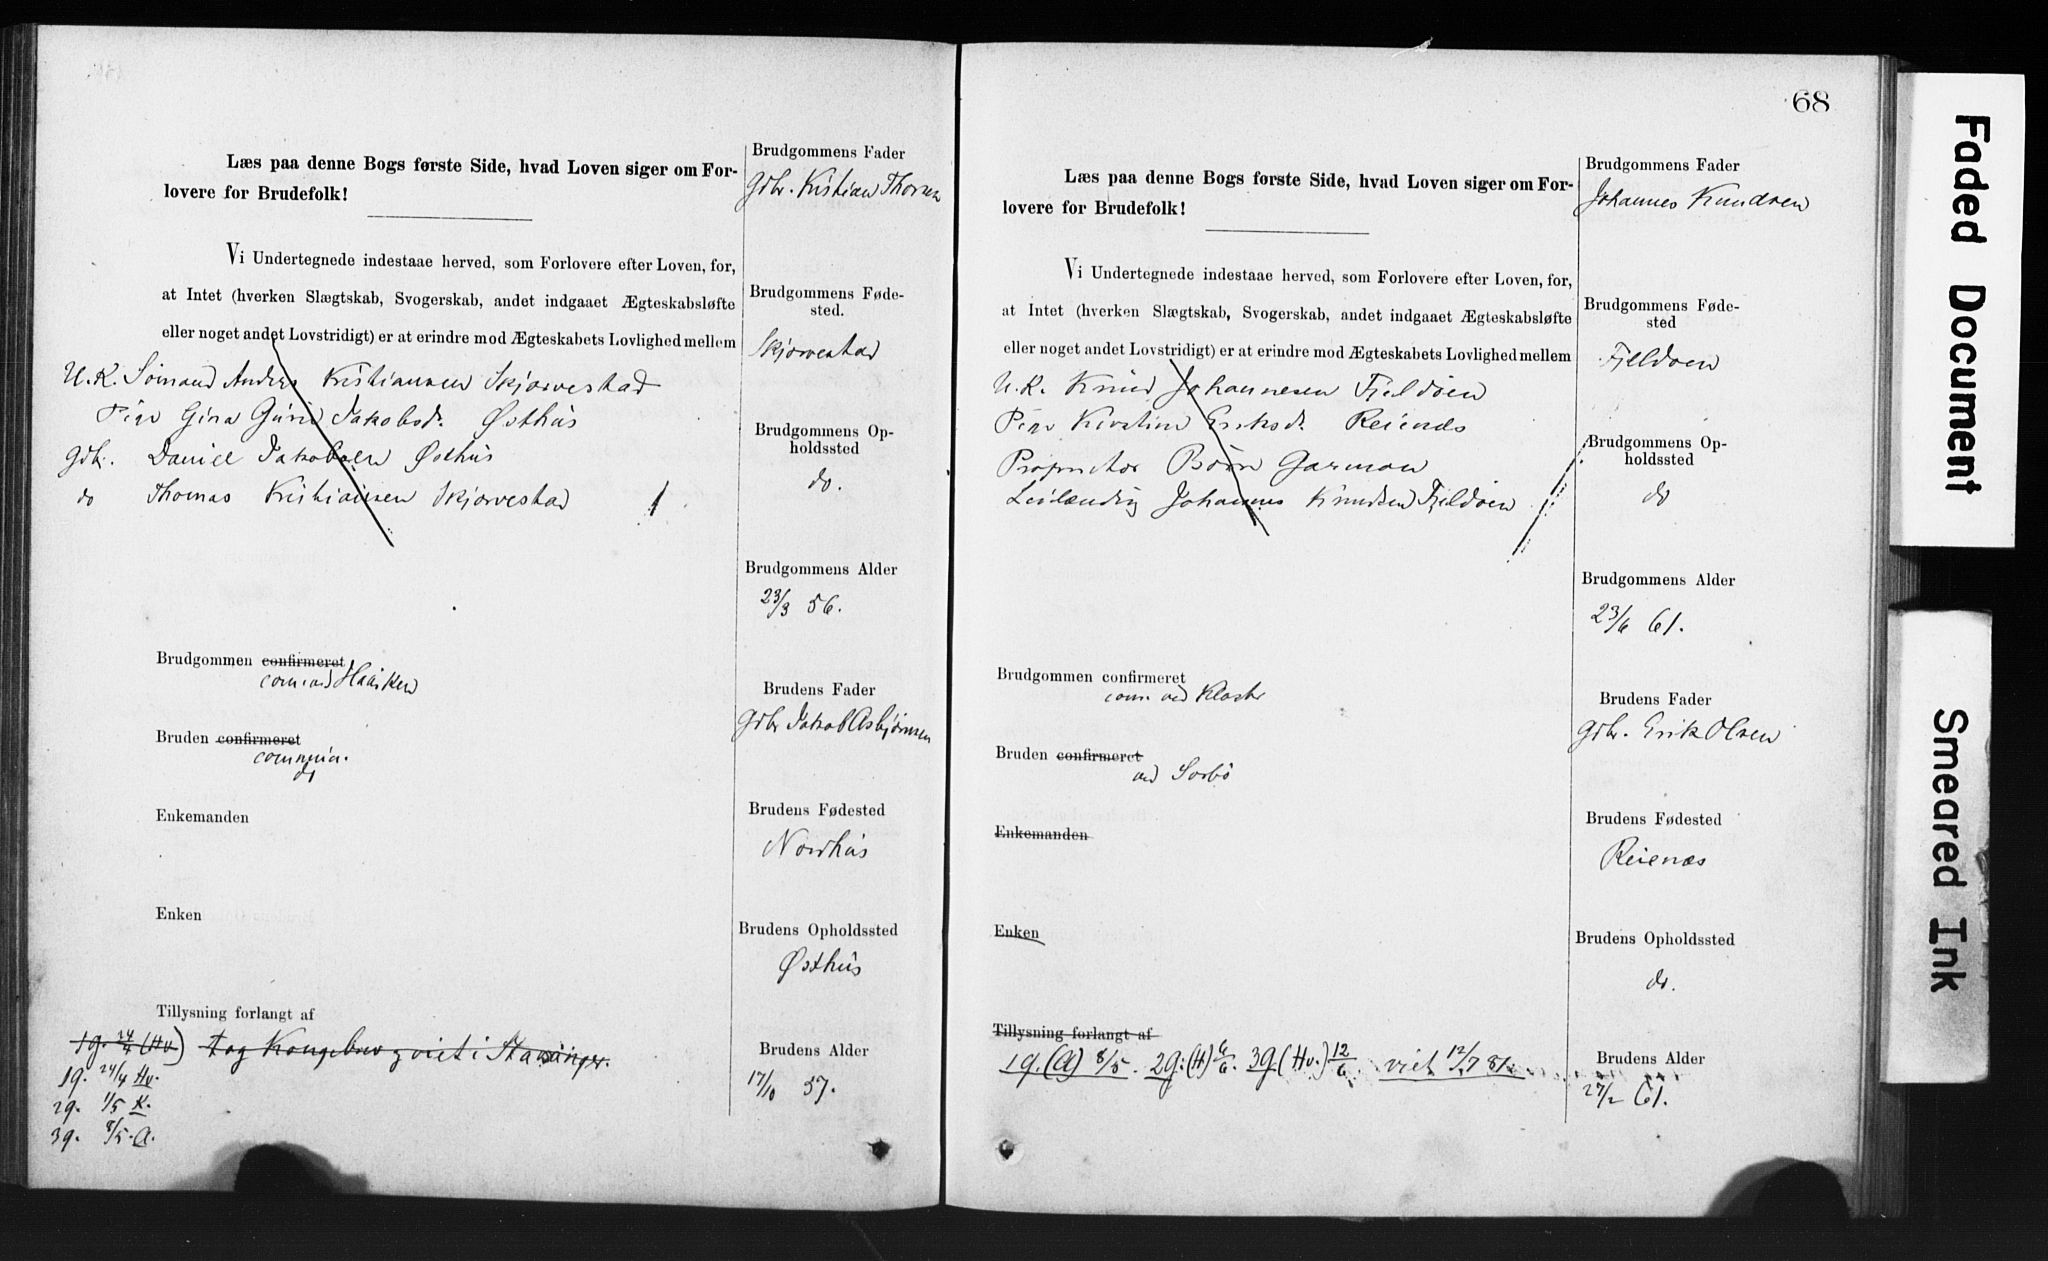 Læs paa denne Bogs første Side, hvad Loven siger om For-
lovere for Brudefolk!
Vi Undertegnede indestaae herved, som Forlovere efter Loven, for,
at Intet (hverken Slægtskab, Svogerskab, andet indgaaet Ægteskabsløfte
eller noget andet Lovstridigt) er at erindre mod Ægteskabets Lovlighed mellem
U.K. Sømand Anders Kristiansen Skjørvestad
Pige Gina Gurine Jakobsd. Østhus
Gdb. Daniel Jakobsen Østhus
do Thomas Kristiansen Skjørvestad
Brudgommen confirmeret
com. ved Hausken
Bruden confirmeret
commun.
do
Enkemanden
Enken
Tillysning forlangt af
1g. 24/4 (Hv) tog Kongebrev g viet i Stavanger.
1g. 24/4 Hv.
2g. 1/5 K.
3g. 8/5. A.
Brudgommens Fader
Gdbr. Kristian Thorsen
Brudgommens Føde-
sted.
Skjørvestad
Brudgommens Op-
holdssted
do.
Brudgommens Alder
23/3 56.
Brudens Fader
Gdbr Jakob Asbjørnsen
Brudens Fødested
Nordhus
Brudens Opholdssted
Østhus
Brudens Alder
17/10 57.
68
Læs paa denne Bogs første Side, hvad Loven siger om For-
lovere for Brudefolk!
Vi Undertegnede indestaae herved, som Forlovere efter Loven, for,
at Intet (hverken Slægtskab, Svogerskab, andet indgaaet Ægteskabsløfte
eller noget andet Lovstridigt) er at erindre mod Ægteskabets Lovlighed mellem
U.K. Knud Johannesen Fjeldøen
Pige Kirstine Eriksd. Reienæs
Proprietær Børe Garman
Leilænding Johannes Knudsen Fjeldøen
Brudgommen confirmeret
com. ved Kloster
Bruden confirmeret
ved Sørbø
Enkemanden
Enken
Tillysning forlangt af
1g. (A) 8/5. 2g. (H) 6/6. 3g (Hv.) 12/6. viet 12/7 81.
Brudgommens Fader
Johannes Knudsen
Brudgommens Føde-
sted
Fjeldøen
Brudgommens Op-
holdssted
do
Brudgommens Alder
23/6 61.
Brudens Fader
Gdbr. Erik Olsen
Brudens Fødested
Reienæs
Brudens Opholdssted
do.
Brudens Alder
27/2 61.
Faded Document
Smeared Ink